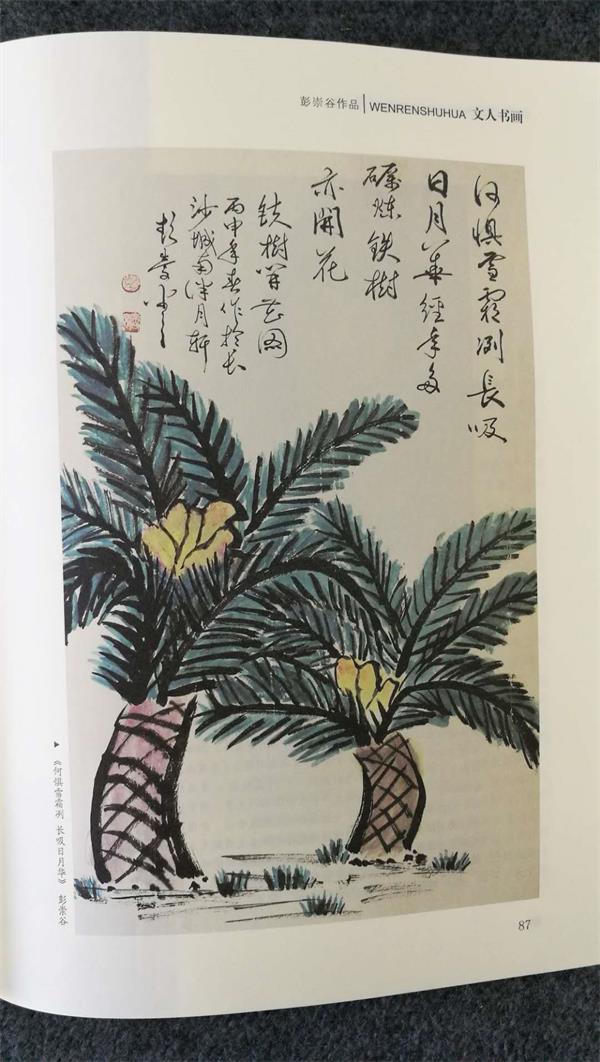 彭崇谷作品 WENRENSHUHUA 文人书画
何惧雪霜冽長吸
日月華經年多
礪炼鉄樹
亦開花
鉄樹開花图
丙申年春作於长
沙城南泮月轩
彭崇谷
▶《何惧雪霜冽 长吸日月华》 彭崇谷
87